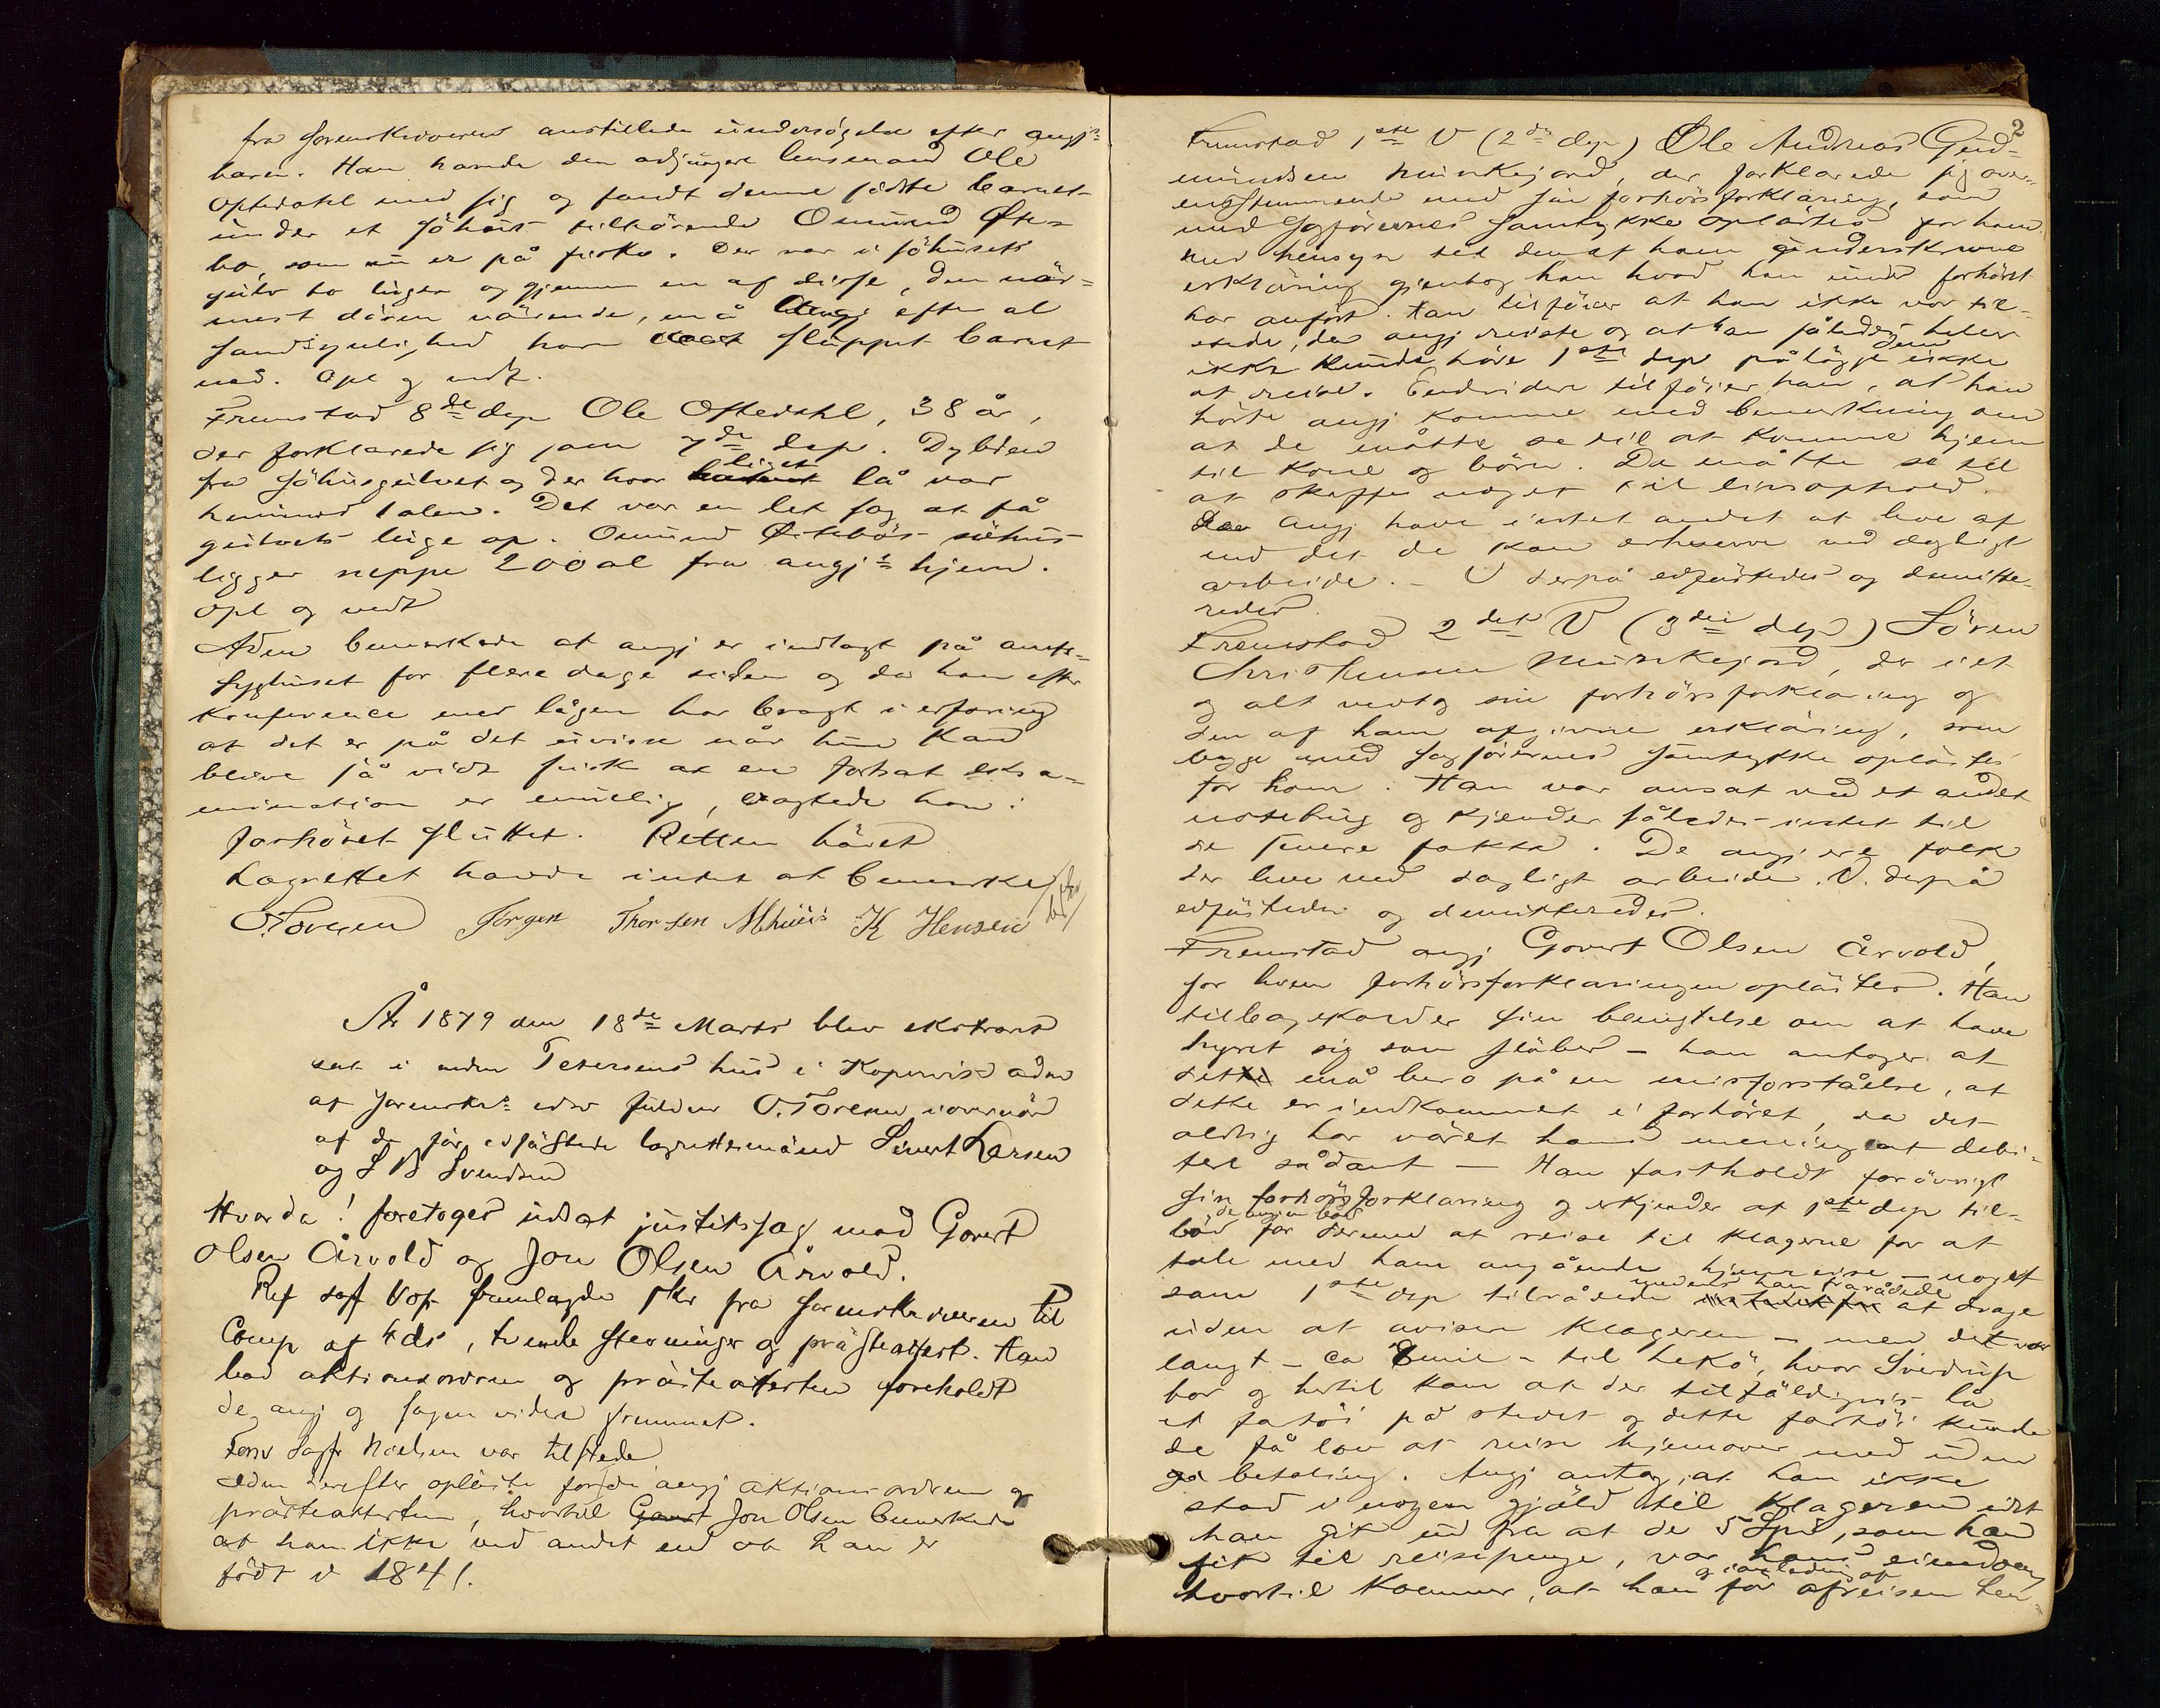 fra Sorenskriveren anstillede undersögelse efter angj:
baren. Han havde den adjungere lensmand Ole
Oftedahl med sig og fandt denne födte barnet
under et söhus tilhörende Osmund Øste-
bö, som nu er på fiske. Der var i söhusets
gulv to luger og gjennem en af disse, den när-
mest dören värende, må angj efter al
sandsynlighed have sluppet barnet
ned. Opl og vedt.
Fremstod 8de dep Ole Oftedahl, 38 år,
der forklarede sig som 7de dep. Dybden
fra söhusgulvet og der hvor liget lå var
henimod 1 alen. Det var en let sag at få
gulvets luge op. Osmund Østebös söhus
ligger neppe 200 al fra angj:s hjem.
Opl og vedt
Adm bemærkede at angj er indlagt på amts-
syghuset for flere dage siden og da han efter
konference med lägen har bragt i erfaring
at det er på det uvisse når hun kan
blive så vidt frisk at en fortsat eksa-
mination er mulig, eragtede han:
forhöret sluttet. Retten hävet
Lagrettet havde intet at bemerke
O. Toresen Jörgen Thorsen Mhuus K Hensen

År 1879 den 18de Marts blev ekstraret
sat i enken Petersens hus i Kopervik adm
af sorenskr:s edsv fuldm O. Toresen i overvär
af de för edfästede lagrettesmänd Sivert Larsen
og S B Svendsen
Hvorda! foretoges udsat justitssag mod Govert
Olsen Årvold og Jon Olsen Årvold.
Ref sagf Vogt fremlagde skr fra sorenskriveren til
Comp af 4 ds, tvende stevninger og prästeattest. Han
bad aktionsordren og prästeattesten foreholdt
de angj og sagen videre fremmet.
Forsv Sagf Nielsen var tilstede
Adm derefter opläste for de angj aktionsordren og
prästeattesten, hvortil Govert Jon Olsen bemerkede
at han ikke ved andet end at han er
födt i 1841.

2
Fremstod 1ste V (2det dep) Ole Andreas Gud-
mundsen Munkejord, der forklarede sig over-
ensstemmende med sin forhörsforklaring, som
med sagförernes samtykke oplästes for ham.
Med hensyn til den af ham underskrevne
erkläring gjentog han hvad han under forhöret
har anfört. Han tilföier at han ikke var til-
stede, da angj reiste og at han således heller
ikke kunde höre 1ste dep pålägge dem ikke
at reise. Endvidere tilföier han, at han
hörte angj komme med bemerkning om
at de måtte se til at komme hjem
til kone og börn. De måtte se til
at skaffe noget til livsophold.
Angj have intet andet at leve af
end det de kan erhverve ved dagligt
arbeide. – V derpå edfästedes og demitte-
redes.
Fremstod 2det V (3die dep) Sören
Christensen Munkejord, der i et
og alt vedtog sin forhörsforklaring og
den af ham afgivne erkläring, som
begge med sagförernes samtykke oplästes
for ham. Han var ansat ved et andet
notebrug og kjender således intet til
de senere fakta. De angj ere folk
der leve ved dagligt arbeide. V. derpå
edfästedes og demitteredes.
Fremstod angj Govert Olsen Årvold,
for hvem forhörsforklaringen oplästes. Han
tilbagekalder sin benegtelse om at have
hyret sig som – han antager at
dette må bero på en misforståelse, at
dette er indkommet i forhöret, da det
aldrig har väret hans mening at debi-
tere sådant – Han fastholdt forövrigt
sin forhörsforklaring og erkjender at 1ste dep til-
böd for dermed at reise til klagerne for at
tale med ham angående hjemreise – noget
som 1ste dep tilrådede medens han frarådede at drage
uden at avisere klageren – men det var
langt – ca mil – til Lekö, hvor Sverdrup
bor og hertil kom at der tilfäldigvis lå
et fartöi på stedet og dette fartöi kunde
de få lov at reise hjemover med uden
betaling. Angj antog, at han ikke
stod i nogen gjäld til klageren idet
han gik ud fra at de 5 Spd, som han
fik til reisepenge, var hans eiendom
hvortil kommer, at han för afreisen